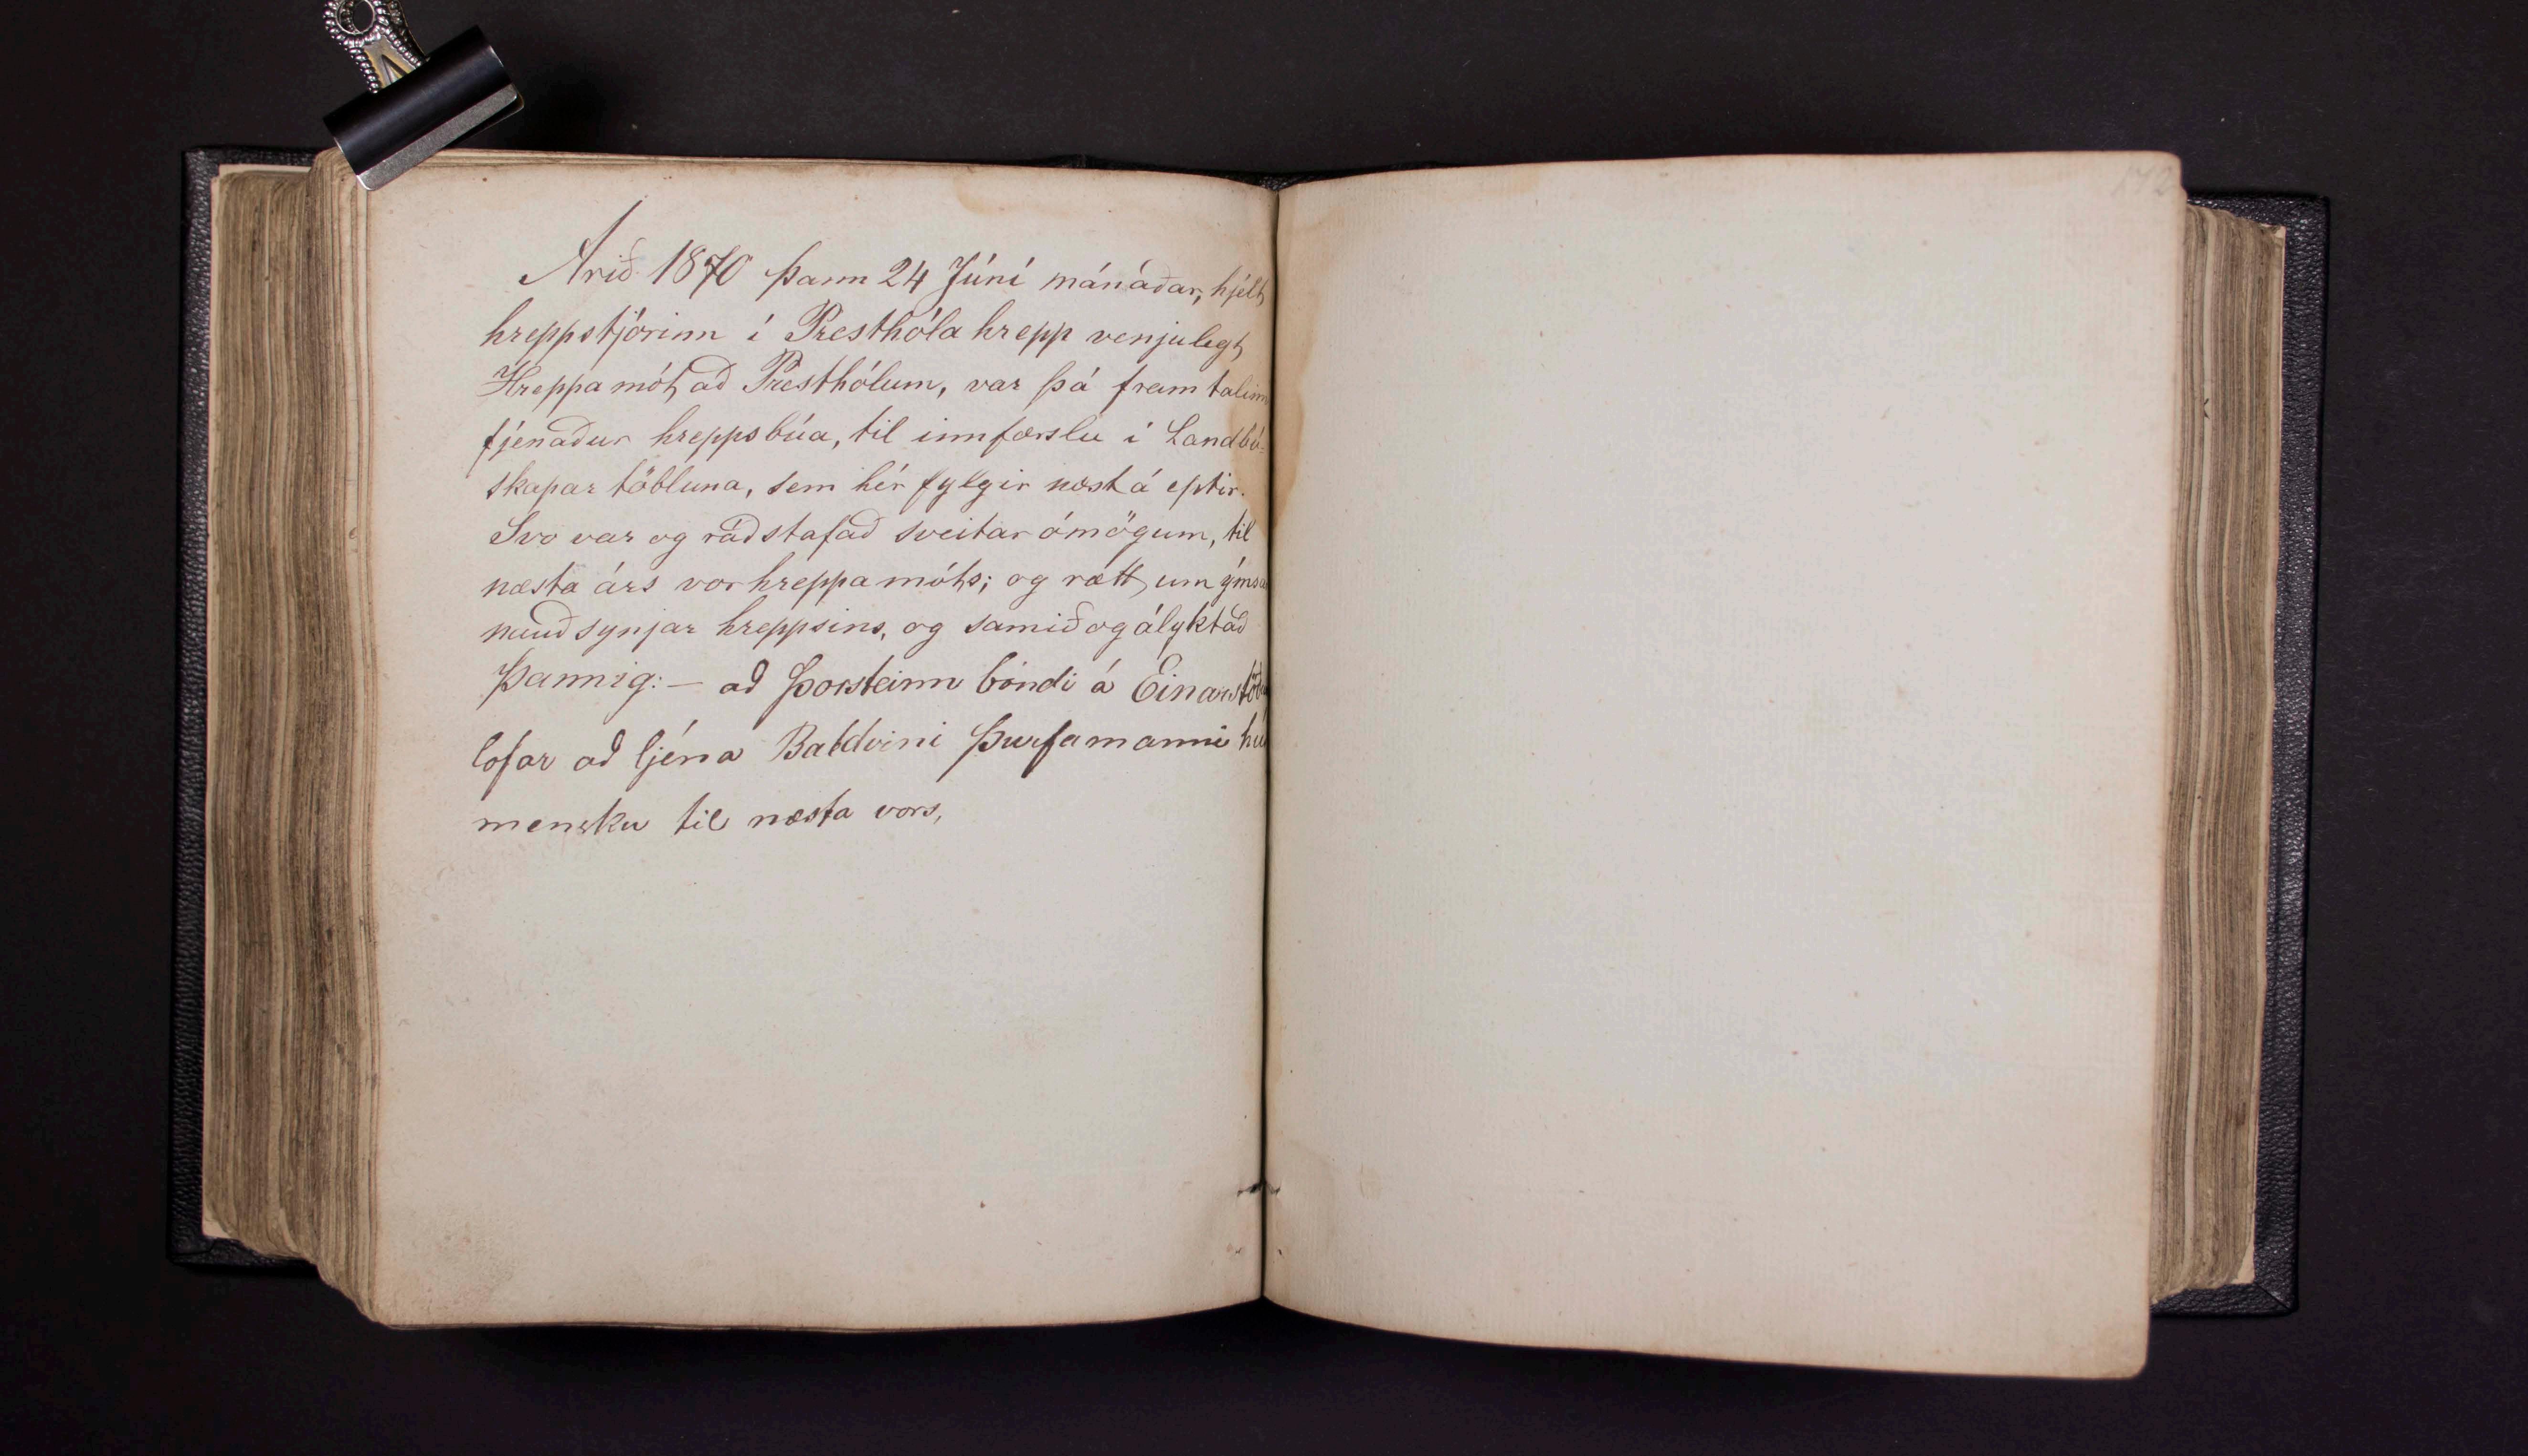 Árið 1870 þann 24 Júní mánáðar, hjelt
hreppstjórinn í Presthóla hrepp venjulegt
Hreppamót að Presthólum, var þá fram talinn
fjenaður hreppsbúa, til innfærslu í Landbú-
skapar töbluna, sem hér fylgir næst á eptir.
Svo var og ráðstafað sveitar ómögum, til
næsta árs vorhreppamóts; og rætt um ýmsa
nauðsynjar hreppsins, og samið og ályktáð
Þannig:- að Þorsteinn bóndi á
lofar að ljéna Baldvini Þurfamanni hús
mensku til næsta vors,
172